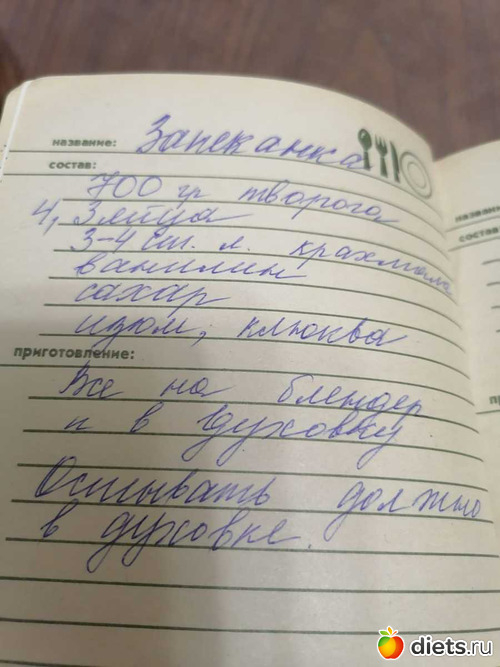 название: Запеканка
состав:
700 гр творога
4, 3 яйца
3-4 ст. л. крахмала
ванилин
сахар
изюм, клюква
приготовление:
Все на блендер
и в духовку
Остывать должно
в духовке.
назван
состав
п
diets.ru